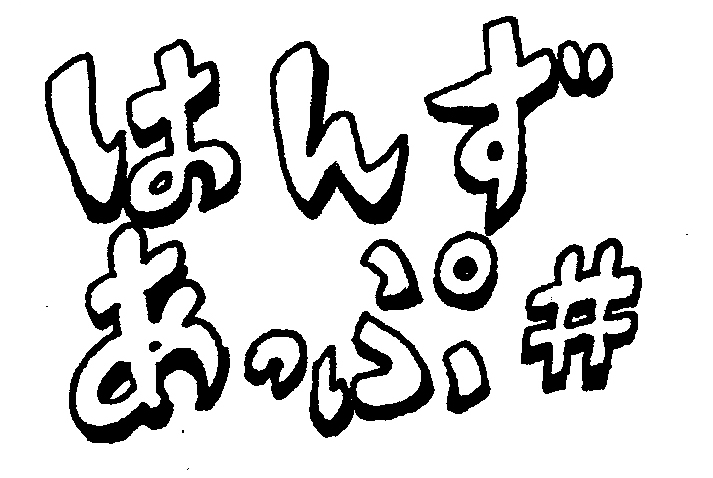 はんず
あっぷ#